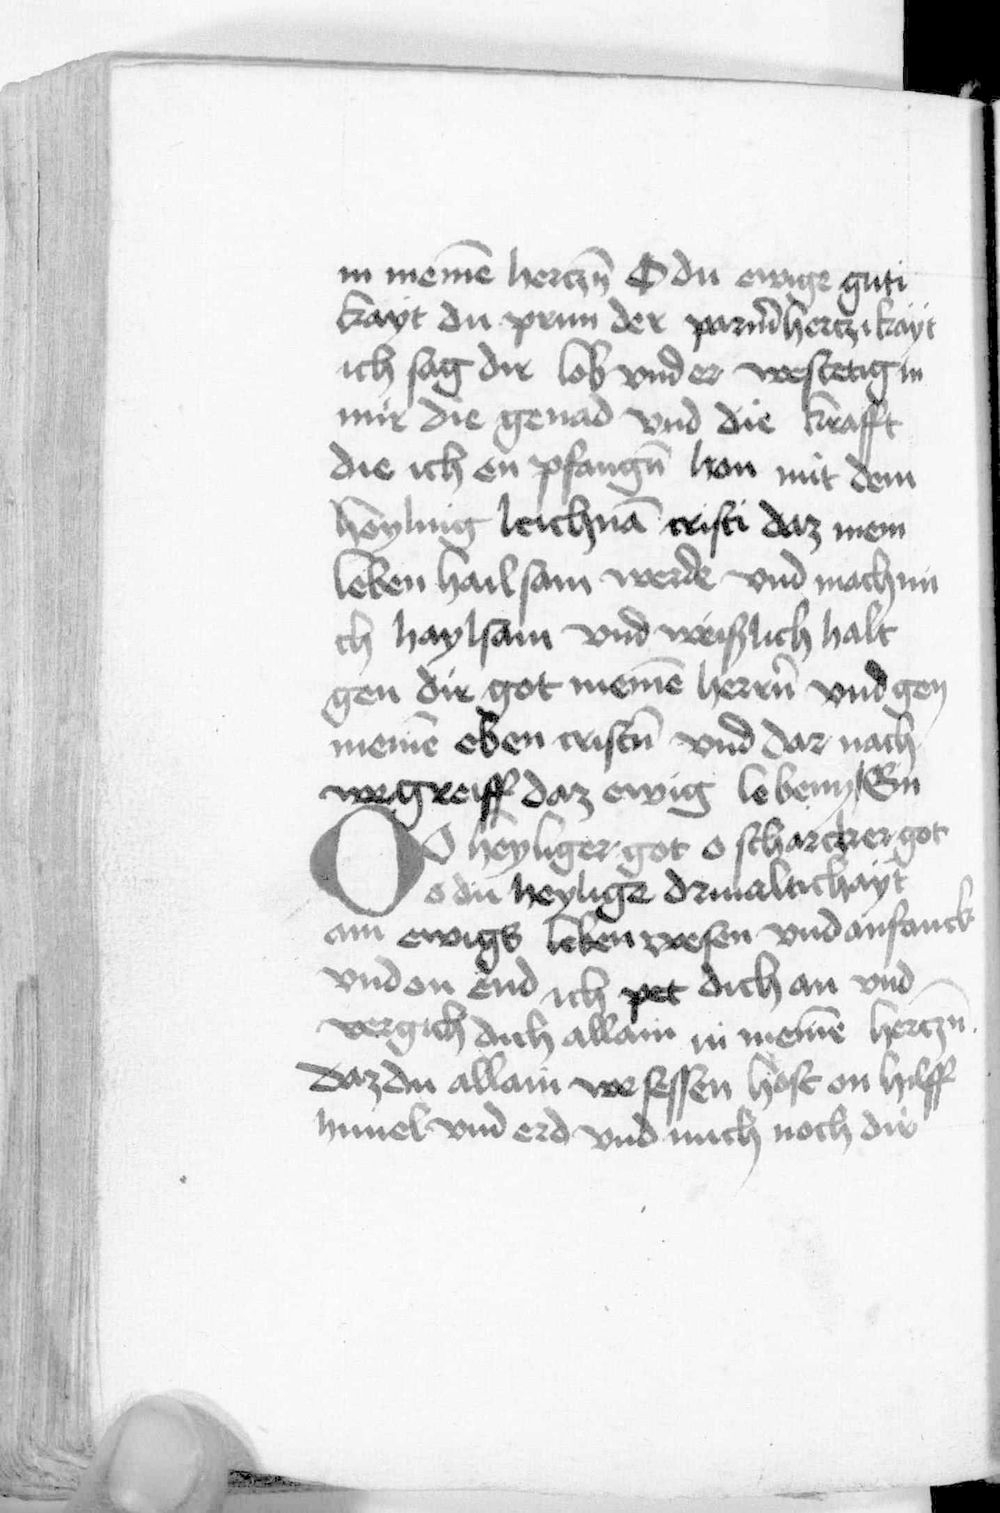 in meinē hertzn̄ O du ewige guti
kayt du prun der parm̄hertzikayt
ich sag dir lob vnd er westetig in
mir die genad vnd die krafft
die ich en pfangn̄ han mit dem
heyling leichnā cristi daz mein
leben hailsam werde vnd mach mi
ch haylsam vnd weißlich halt
gen dir got meinē herrn̄ vnd gen
meinē eben cristn̄ vnd dar nach
wegreiff daz ewig leben Ein
O O heyliger got o starcker got
o du heylige driualtichayt
ain ewigs leben wesen vnd anfanck
vnd on end ich pet dich an vnd
vergich dich allain in meinē hertzn̄
daz du allain wesessen host on hilff
himel vnd erd vnd mich noch dir